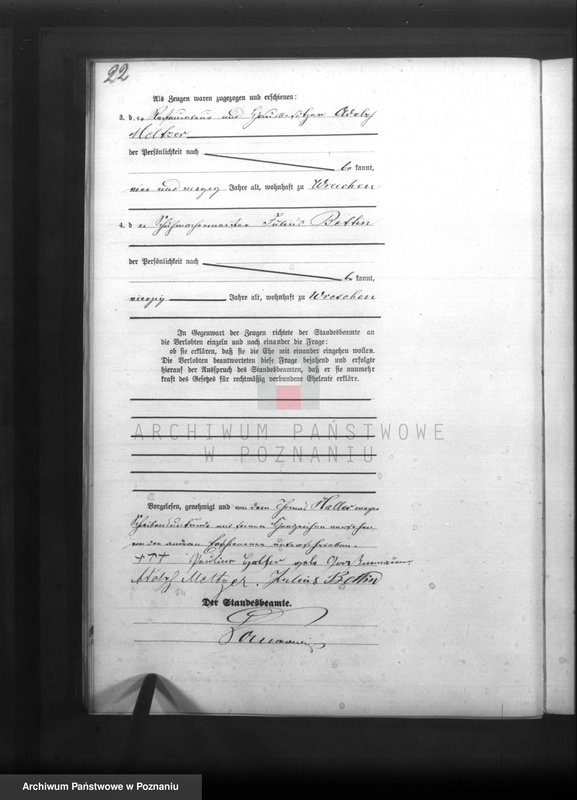 22
Als Zeugen waren zugezogen und erschienen:
3. der Restaurateur und Hausbesitzer Adolf
Meltzer
der Persönlichkeit nach
be kannt,
vier und vierzig Jahre alt, wohnhaft zu Wreschen
4. der Schuhmachermeister Julius Bettin
der Persönlichkeit nach
be kannt,
vierzig Jahre alt, wohnhaft zu Wreschen
In Gegenwart der Zeugen richtete der Standesbeamte an
die Verlobten einzeln und nach einander die Frage:
ob sie erklären, daß sie die Ehe mit einander eingehen wollen.
Die Verlobten beantworteten diese Frage bejahend und erfolgte
hierauf der Ausspruch des Standesbeamten, daß er sie nunmehr
kraft des Gesetzes für rechtmäßig verbundene Eheleute erkläre.
ARCHIWUM PAŃSTWOWE
W POZNANIU
Vorgelesen, genehmigt und von dem Thomas Haller wegen
Schreibensunkunde mit seinem Handzeichen versehen
von den anderen Erschienenen unterschrieben.
+++ Pauline geb.
Adolf Meltzer. Julius Bettin
Der Standesbeamte.
Archiwum Państwowe w Poznaniu